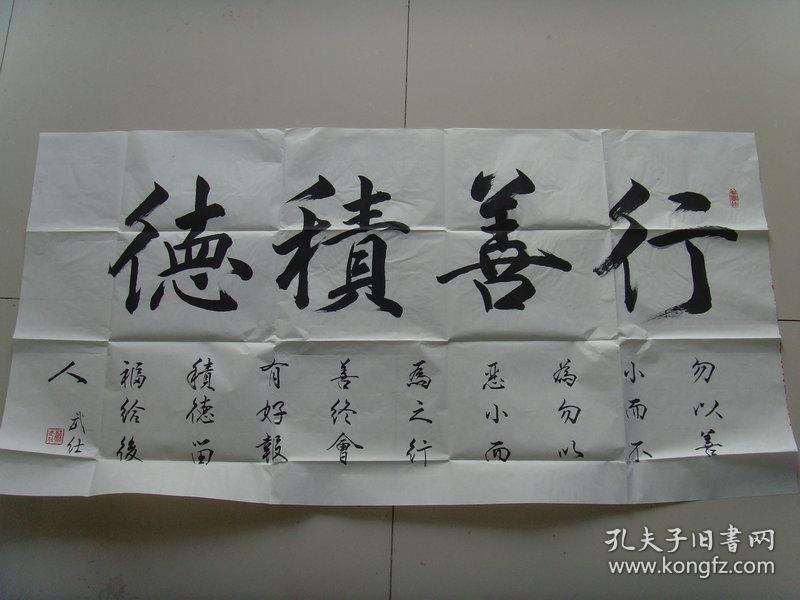 行善積德
勿以善
小而不
為勿以
惡小而
為之行
善终會
有好報
積德留
福给後
人
武仕
孔夫子旧書网
www.kongfz.com